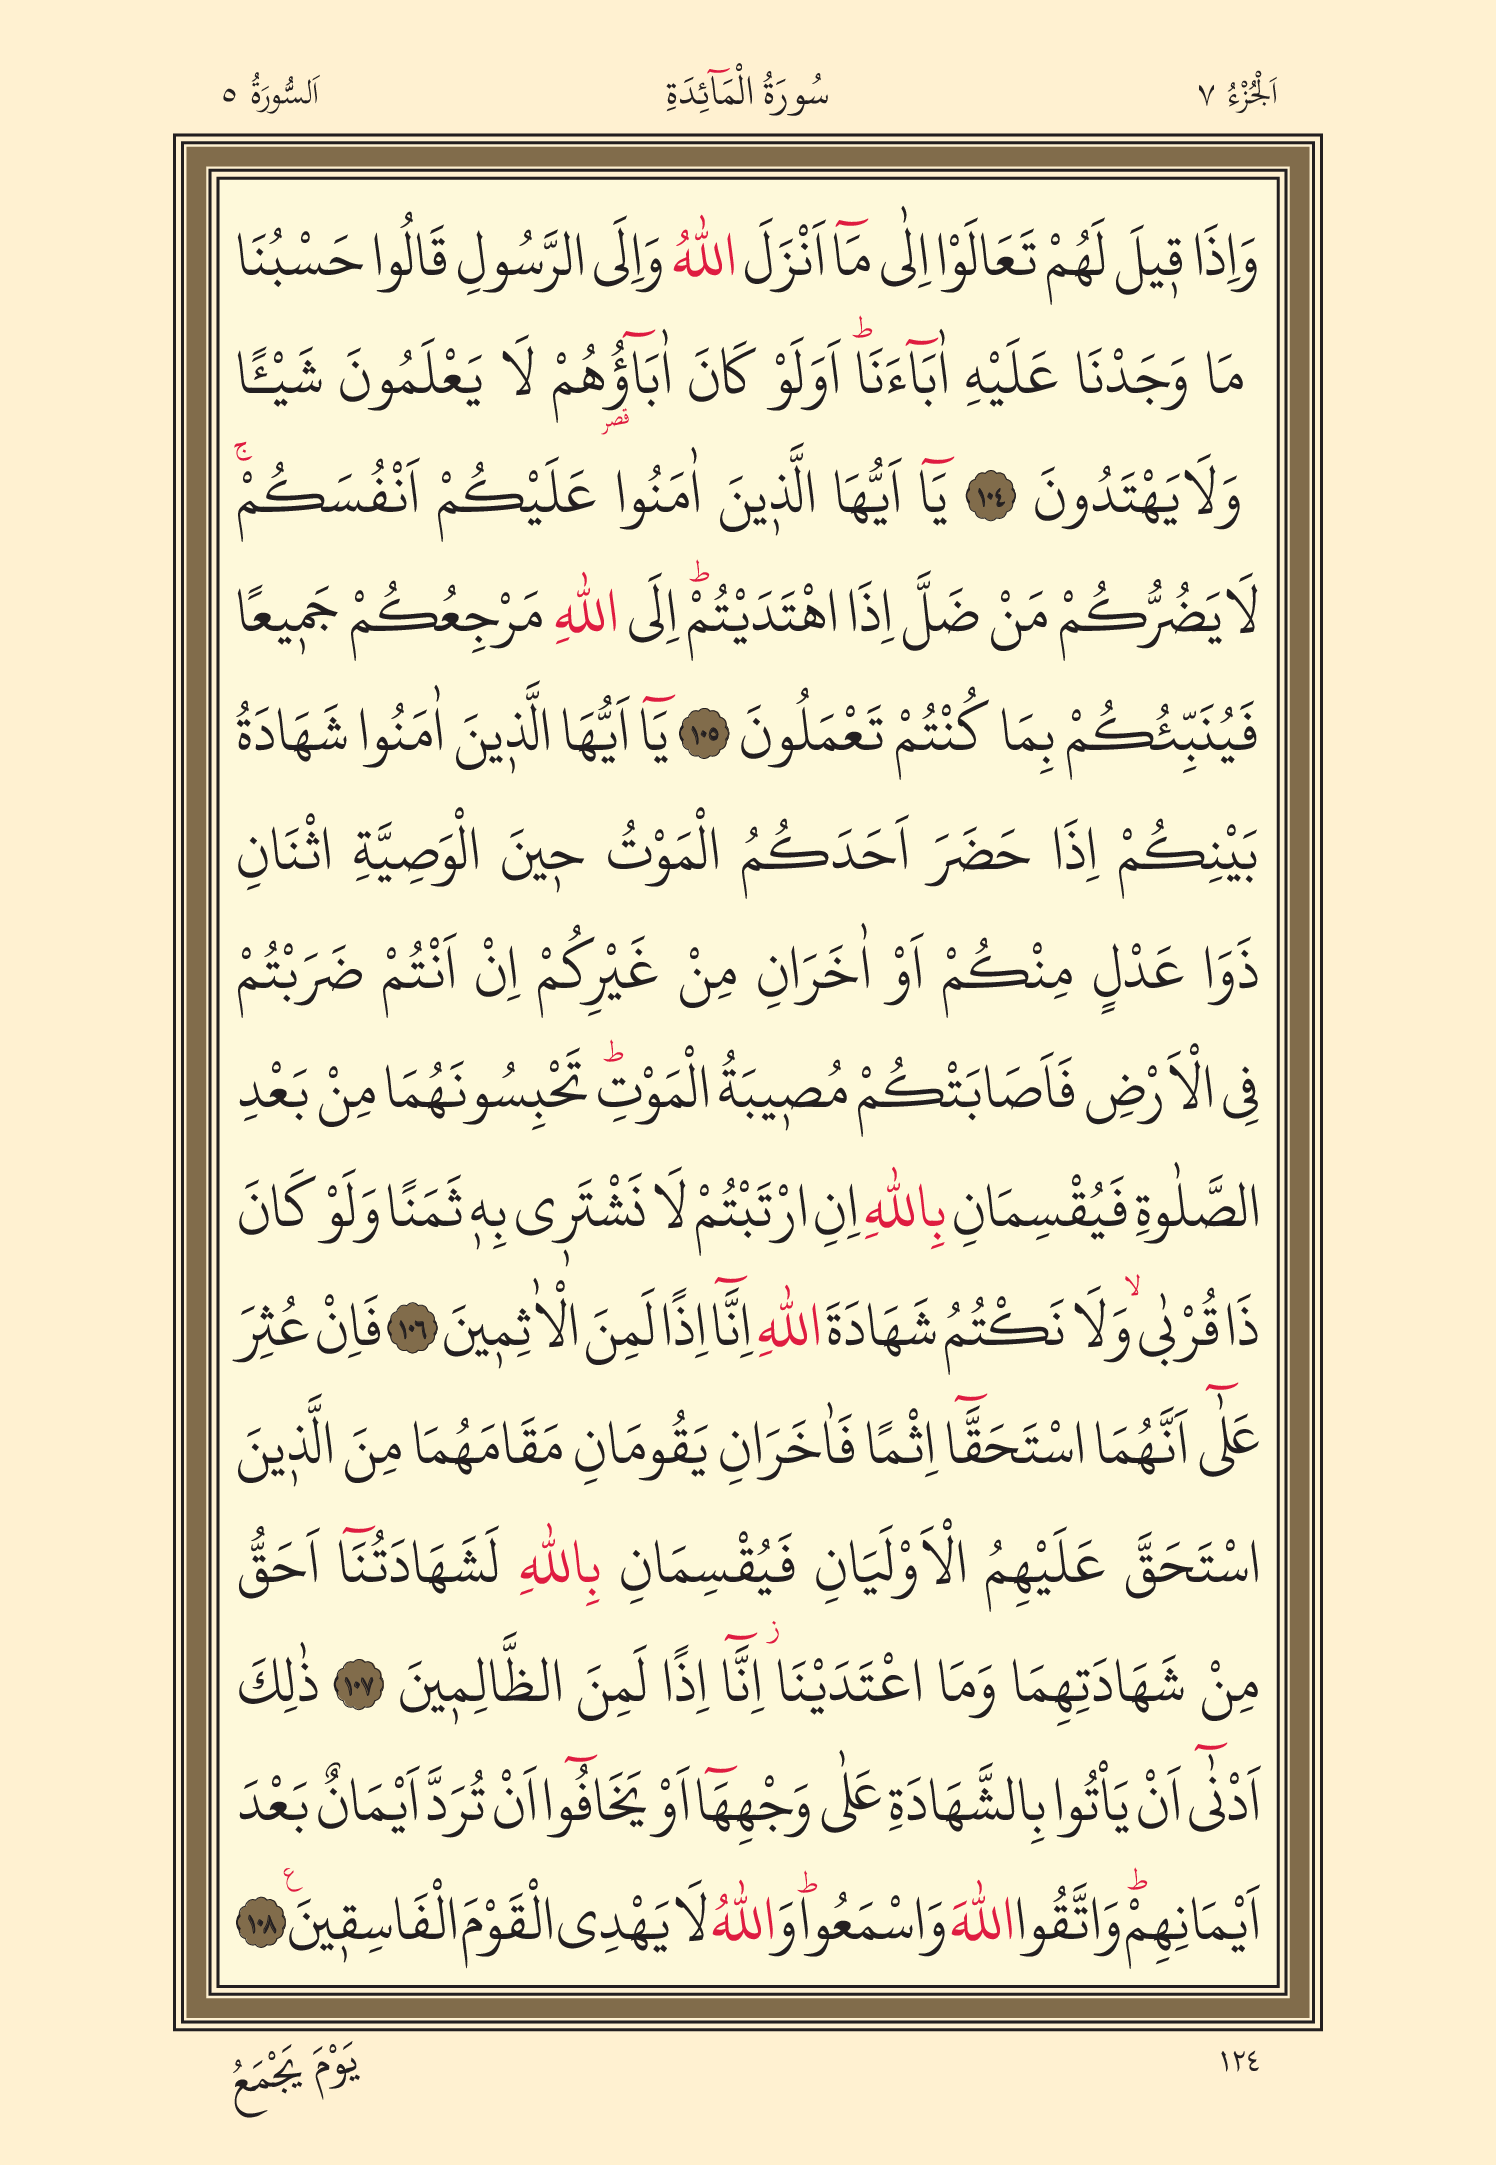 اَلْجُزْءُ ٧
سُورَةُ الْمَآئِدَةِ
اَلسُّورَةُ ٥
وَاِذَا قٖيلَ لَهُمْ تَعَالَوْا اِلٰى مَآ اَنْزَلَ اللّٰهُ وَاِلَى الرَّسُولِ قَالُوا حَسْبُنَا
مَا وَجَدْنَا عَلَيْهِ اٰبَآءَنَاؕ اَوَلَوْ كَانَ اٰبَآؤُ۬هُمْ لَا يَعْلَمُونَ شَيْـًٔا
وَلَا يَهْتَدُونَ ١٠٤ يَآ اَيُّهَا الَّذٖينَ اٰمَنُوا عَلَيْكُمْ اَنْفُسَكُمْۚ
لَا يَضُرُّكُمْ مَنْ ضَلَّ اِذَا اهْتَدَيْتُمْؕ اِلَى اللّٰهِ مَرْجِعُكُمْ جَمٖيعًا
فَيُنَبِّئُكُمْ بِمَا كُنْتُمْ تَعْمَلُونَ ١٠٥ يَآ اَيُّهَا الَّذٖينَ اٰمَنُوا شَهَادَةُ
بَيْنِكُمْ اِذَا حَضَرَ اَحَدَكُمُ الْمَوْتُ حٖينَ الْوَصِيَّةِ اثْنَانِ
ذَوَا عَدْلٍ مِنْكُمْ اَوْ اٰخَرَانِ مِنْ غَيْرِكُمْ اِنْ اَنْتُمْ ضَرَبْتُمْ
فِى الْاَرْضِ فَاَصَابَتْكُمْ مُصٖيبَةُ الْمَوْتِؕ تَحْبِسُونَهُمَا مِنْ بَعْدِ
الصَّلٰوةِ فَيُقْسِمَانِ بِاللّٰهِ اِنِ ارْتَبْتُمْ لَا نَشْتَرٖى بِهٖ ثَمَنًا وَلَوْ كَانَ
ذَا قُرْبٰى ۙ وَلَا نَكْتُمُ شَهَادَةَ اللّٰهِ اِنَّآ اِذًا لَمِنَ الْاٰثِمٖينَ ١٠٦ فَاِنْ عُثِرَ
عَلٰٓى اَنَّهُمَا اسْتَحَقَّآ اِثْمًا فَاٰخَرَانِ يَقُومَانِ مَقَامَهُمَا مِنَ الَّذٖينَ
اسْتَحَقَّ عَلَيْهِمُ الْاَوْلَيَانِ فَيُقْسِمَانِ بِاللّٰهِ لَشَهَادَتُنَآ اَحَقُّ
مِنْ شَهَادَتِهِمَا وَمَا اعْتَدَيْنَاؗ اِنَّآ اِذًا لَمِنَ الظَّالِمٖينَ ١٠٧ ذٰلِكَ
اَدْنٰٓى اَنْ يَاْتُوا بِالشَّهَادَةِ عَلٰى وَجْهِهَآ اَوْ يَخَافُٓوا اَنْ تُرَدَّ اَيْمَانٌ بَعْدَ
اَيْمَانِهِمْؕ وَاتَّقُوا اللّٰهَ وَاسْمَعُواؕ وَاللّٰهُ لَا يَهْدِى الْقَوْمَ الْفَاسِقٖينَࣖ ١٠٨
١٢٤
يَوْمَ يَجْمَعُ